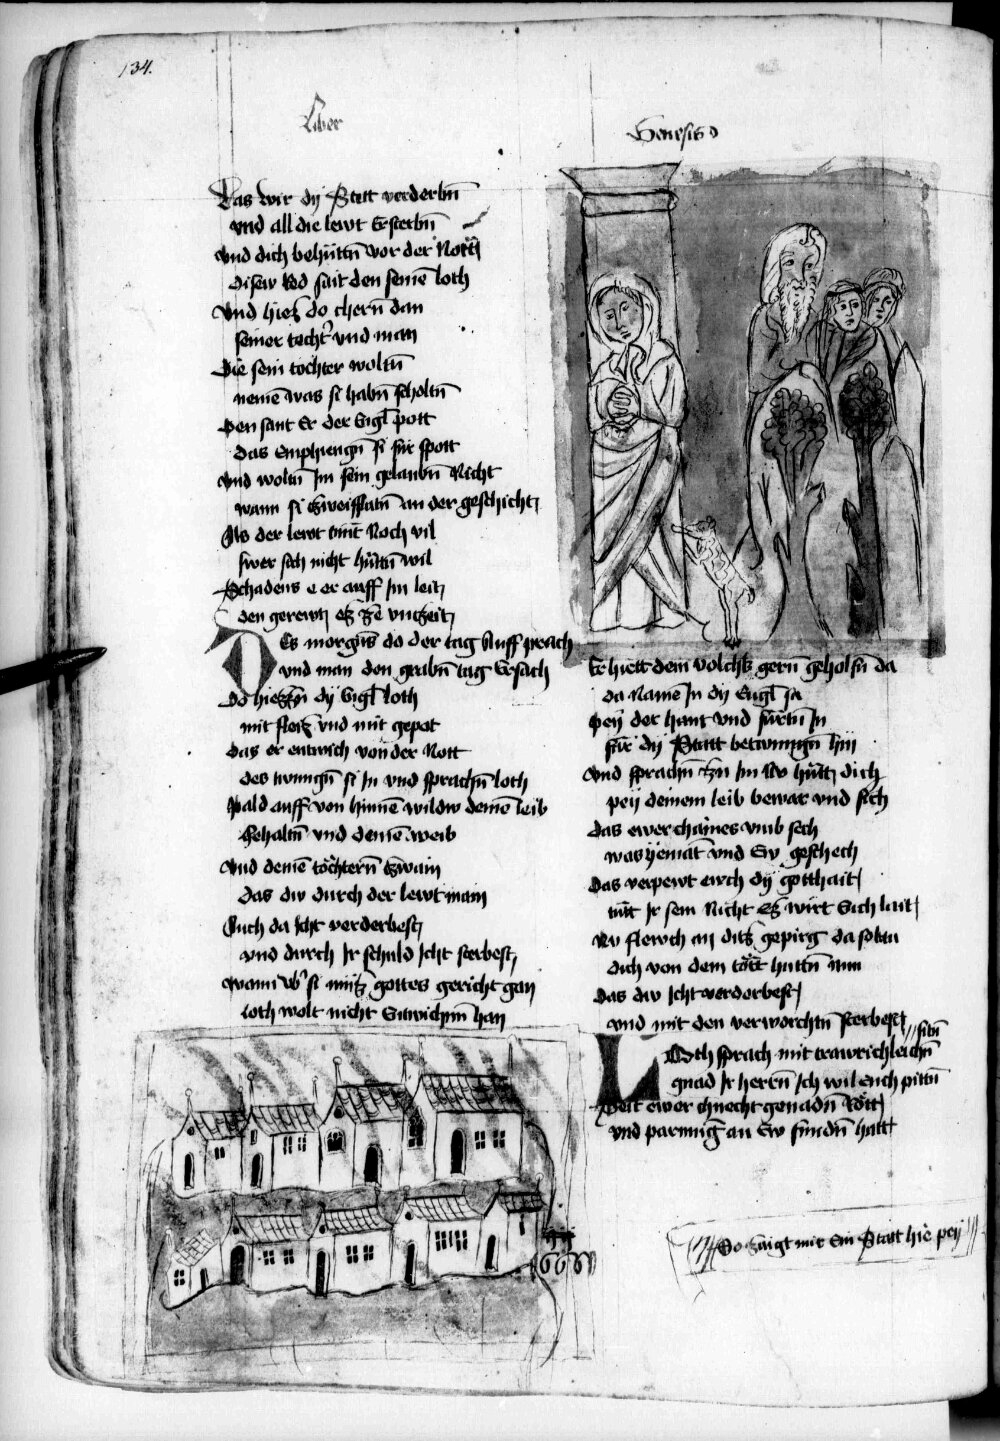 134.
Liber
Genesis
Das wir dy Statt verderbn̄
vnd all die lewt Ersterbn̄
vnd dich behüttn̄ vor der Nott
diserw Red sait den seinē loth
vnd hies do chern̄ dan
seiner tocht' vnd man
Die sein tochter woltn̄
nemē was si habn̄ scholtn̄
Den sant Er der Engl pott
das Emphiengn̄ si für spott
vnd woltn̄ Im sein gelaubn̄ Nicht
wann si zweiffltn̄ an der geschicht
Als der lewt tuut Noch vil
swer sich nicht hüttn̄ wil
Schadens e er auff Im leit
den gerewt es ze vnczeit
Des morgens do der tag Auff prach
vnd man den grabn̄ tag Ersach
Do hiezzn̄ dy Engl loth
mit fleiz vnd mit gepot
das er entwich von der Nott
des twungn̄ si In vnd sprachn̄ loth
Pald auff von hinnē wildw deinē leib
Gehaltn̄ vnd deinē weib
vnd deinē töchtern̄ zwain
das dw durch der lewt main
Auch da Icht verderbest
vnd durch Ir schuld Icht sterbest
wann vb' si müz gottes gericht gan
loth wolt nicht Entwichn̄ han
Er hiett dem volchk gern̄ geholfn̄ da
da Namē In dy Engl ja
Pey der hant vnd fürtn̄ In
für dy Statt betwungn̄ hin
vnd sprachn̄ zu Im Nv hütt dich
pey deinem leib bewar vnd sich
das ewer chaines vmb sech
was yemāt vnd Ew geschech
das verpewt ewch dy gotthait
tüt Ir sein Nicht Es wirt Euch lait
Nv flewch an ditz gepirg da soltu
dich von dem tött huttn̄ nun
das dw Icht verdorbest
vnd mit den verworchtn̄ sterbest
Loth sprach mit trawrichleichn̄ sitn̄
gnad Ir herrn̄ Ich wil Euch pittn̄
Seit ewer chnecht genadn̄ Hött
vnd parmūg an Ew fundn̄ hatt
Do zaigt mir Ein Statt hie pey